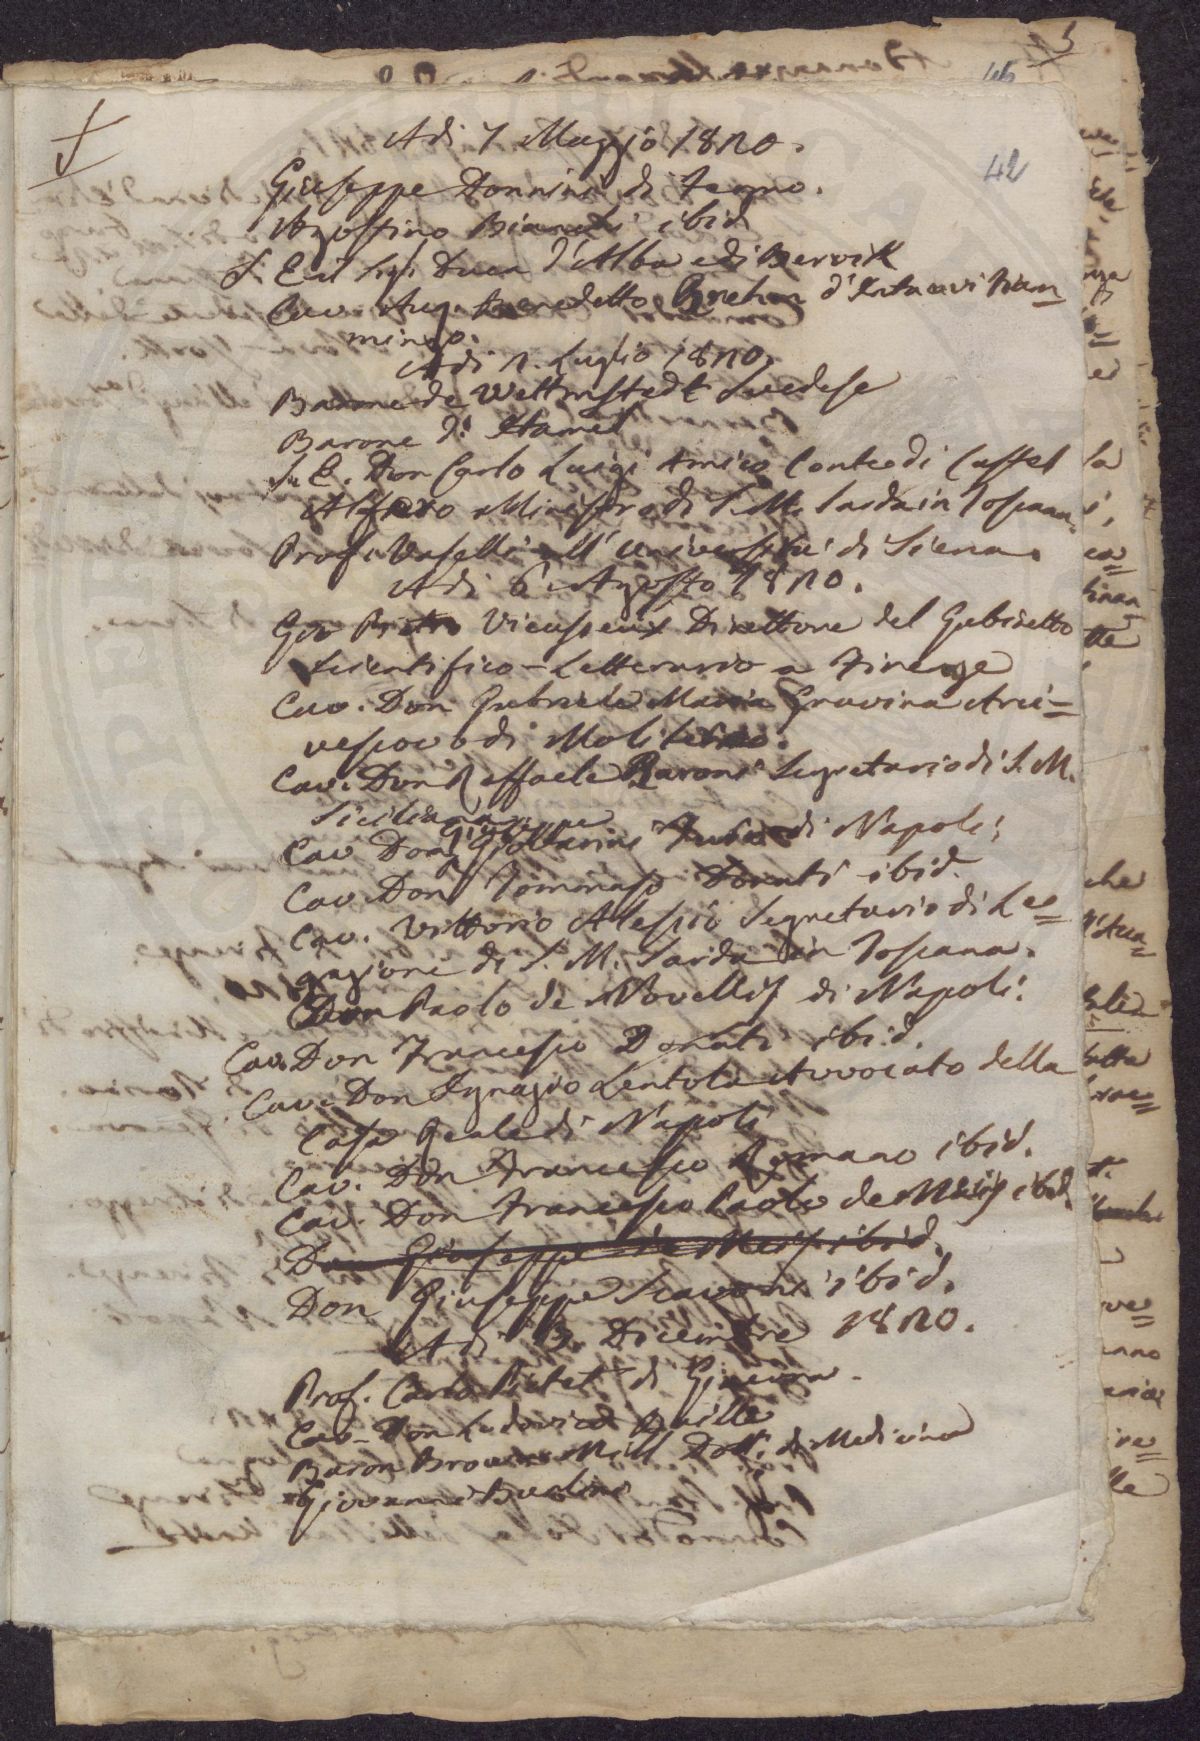 5
46
42
Adi 7 Maggio 1820.
Giuseppe Donnini di Fegno.
Agostino Bianchi ibid
S. Ecc. Sig. Duca d'Alba e di Bervik
Cav. Aug. Benedetto Brehon d'
mingo.
Adi 2. Luglio 1820.
Barone de Wetterstedt Svedese
Barone di Hamel
Su E. Don Carlo Luigi Amico Conte di Castel
Alfero Ministro di S. M. Sarda in Toscana.
Prof. Vaselli all' Università di Siena.
Adi 6 Agosto 1820.
Gio Pietro Vieuseux Direttore del Gabinetto
Scientifico-Letterario a Firenze
Cav. Don Gabriele Maria Gravina Arci=
vescovo di Moliterno.
Cav. Don Raffaele Baroni Segretario di S. M.
Siciliana
Giuseppe
Cav Don di Napoli;
Cav Don Tommaso Donati ibid.
Cav. Vittorio Alessio Segretario di Le=
gazione di S. M. Sarda in Toscana.
Don Paolo de Novellis di Napoli.
Cav. Don Francesco Donati ibid.
Cav. Don Ignazio Lentola Avvocato della
Casa Reale di Napoli
Cav. Don Francesco Romano ibid.
Cav. Don Francesco Paolo de Meis ibid.
Don Giuseppe de Meis ibid.
Don Giuseppe Scavone ibid.
Adi 3. Dicembre 1820.
Prof. Carlo Pictet di Ginevra.
Cav. Don Ludovico Baille
Baron Brown Mill Dott. di Medicina
Giovanni